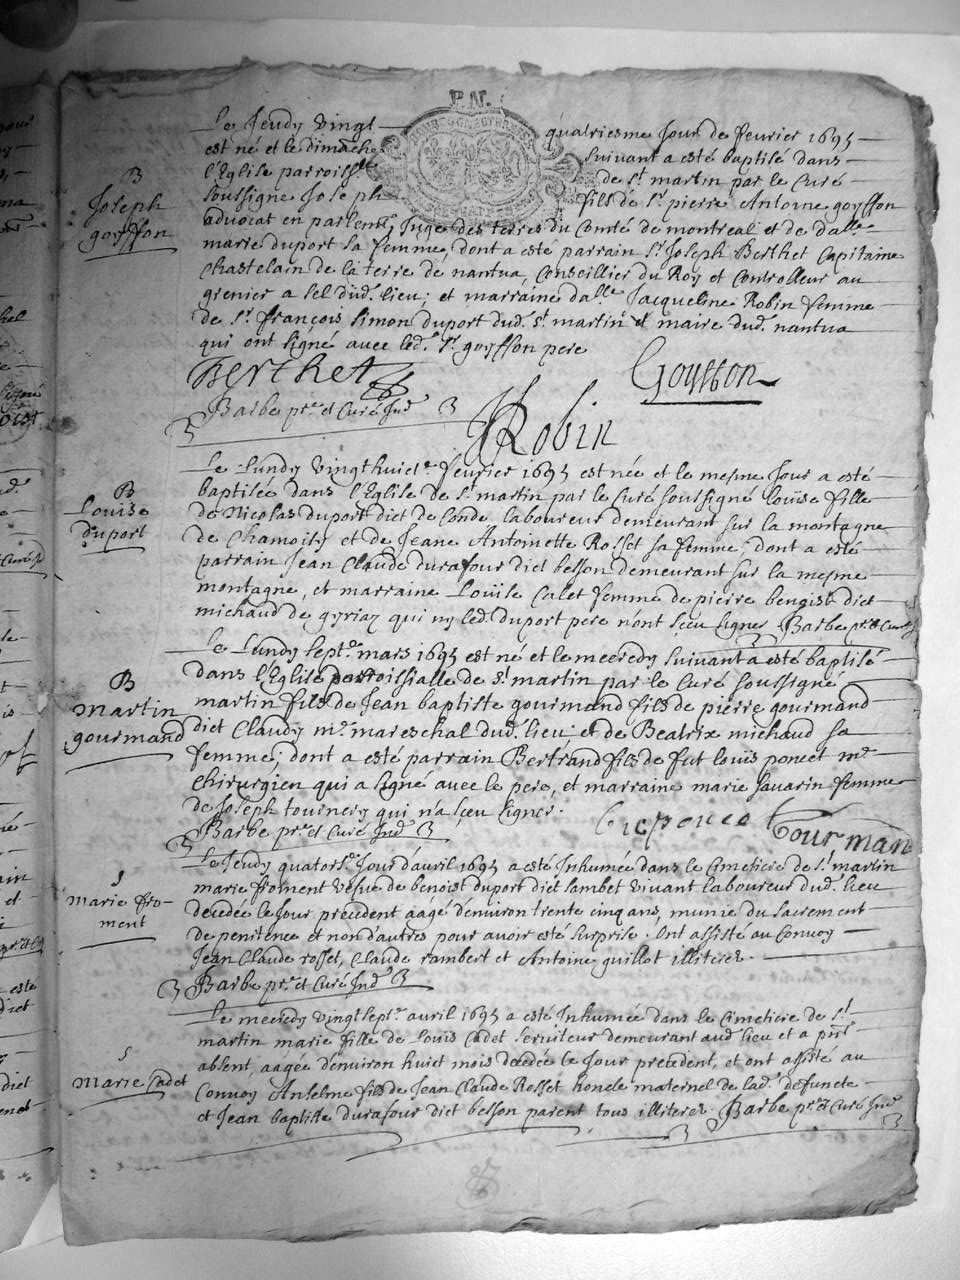 P.N.
B
Joseph
goyffon
Le Jeudy vingt quatriesme Jour de fevrier 1695
est né et le dimanche suivant a esté baptisé dans
l'Eglise parroissle de St martin par le Curé
soussigne Joseph fils de Sr pierre Antoine goyffon
advocat en parlent, Juge des terres du Comté de montreal et de dalle
marie duport sa femme, dont a esté parrain Sr Joseph Berthet Capitaine
Chastelain de la terre de nantua, Conseillier du Roy et Controlleur au
grenier a sel dud. lieu; et marraine dalle Jacqueline Robin femme
de Sr françois simon duport dud. St martin et maire dud. nantua
qui ont signé avec led. Sr goyffon pere
Berthet
Goyffon
Barbe ptre et Curé Ind
Robin
B
Louise
duport
Le Lundy vingthuict fevrier 1695 est née et le mesme Jour a esté
baptisée dans l'Eglise de St martin par le Curé soussigné Louise fille
de Nicolas duport dict de Conde laboureur demeurant sur la montagne
de Chamoise et de Jeane Antoinette Rosset sa femme, dont a esté
parrain Jean Claude durafour dict besson demeurant sur la mesme
montagne, et marraine Louise Calet femme de pierre benoist dict
michaud de gyriaz qui ny led. duport pere nont sçeu signer Barbe ptre et Curé
B
Martin
gourmand
Le Lundy sept mars 1695 est né et le mecredy suivant a esté baptisé
dans l'Eglise parroissialle de St martin par le Curé soussigné
martin fils de Jean baptiste gourmand fils de pierre gourmand
dict Claudy me mareschal dud. lieu, et de Beatrix michaud sa
femme, dont a esté parrain Bertrand fils de fut louis poncet me
chirurgien qui a signé avec le pere, et marraine marie savarin femme
de Joseph tournery qui n'a sçeu signer.
Barbe ptre et Curé Ind
poncet Gourman
S
Marie fro-
ment
Le Jeudy quators. Jour d'avril 1695 a esté Inhumée dans le Cimetiere de St martin
marie froment vefve de benoist duport dict lambet vivant laboureur dud. lieu
decedée le Jour precedent aagé d'environ trente cinq ans, munie du sacrement
de penitence et non d'autres pour avoir esté surprise. Ont assisté au Convoy
Jean Claude rosset, Claude rambert et Antoine guillot illiterez.
Barbe ptre et Curé Ind
S
Marie Cadet
Le mecredy vingtsept avril 1695 a esté Inhumée dans le Cimetiere de St
martin marie fille de Louis Cadet serviteur demeurant aud. lieu et a pnt
absent, aagée d'environ huict mois decedée le Jour precedent, et ont assisté au
Convoy Anselme fils de Jean Claude Rosset honcle maternel de lad. defuncte
et Jean baptiste durafour dict besson parent tous illiterez. Barbe ptre et Curé Ind